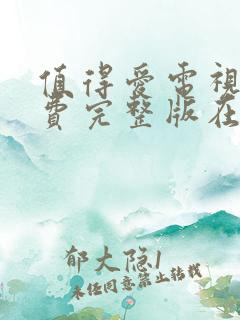 值得爱电视
费完整版在
郁大隐1
未经同意禁止转载